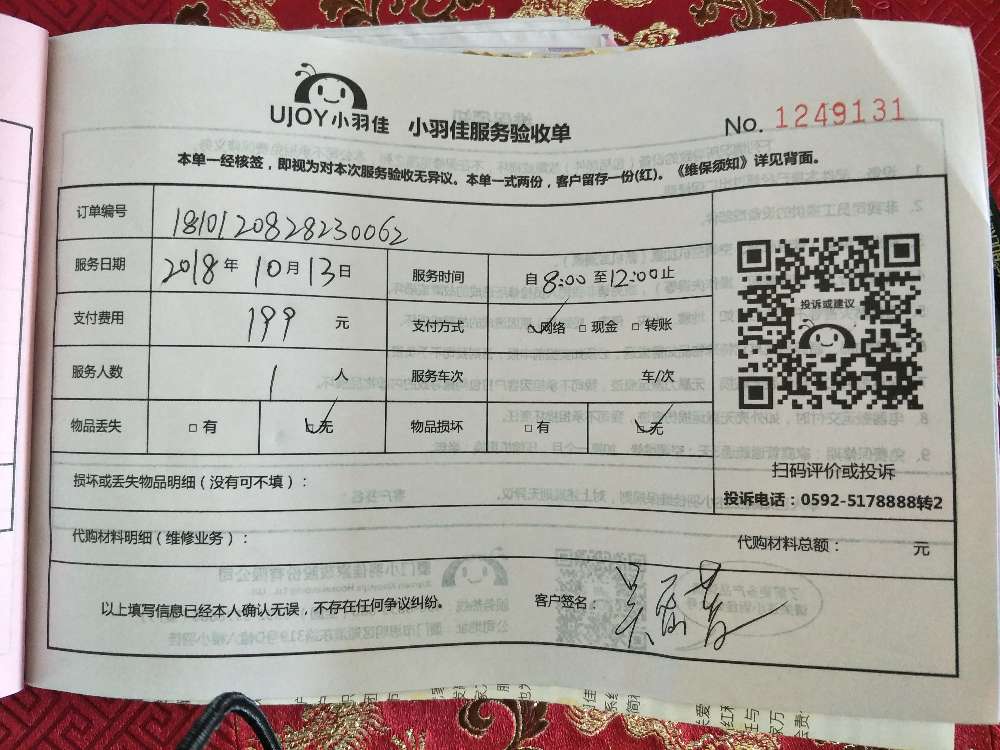 UJOY小羽佳 小羽佳服务验收单 No. 1249131
本单一经核签，即视为对本次服务验收无异议。本单一式两份，客户留存一份(红)。《维保须知》详见背面。
订单编号 1810120828230062
服务日期 2018年10月13日 服务时间 自8:00至12:00止
投诉或建议
支付费用 199 元 支付方式 ☑网络 □现金 □转账
服务人数 1 人 服务车次 车/次
物品丢失 □有 ☑无 物品损坏 □有 ☑无
扫码评价或投诉
损坏或丢失物品明细（没有可不填）：
投诉电话：0592-5178888转2
代购材料明细（维修业务）：
代购材料总额： 元
以上填写信息已经本人确认无误，不存在任何争议纠纷。 客户签名：